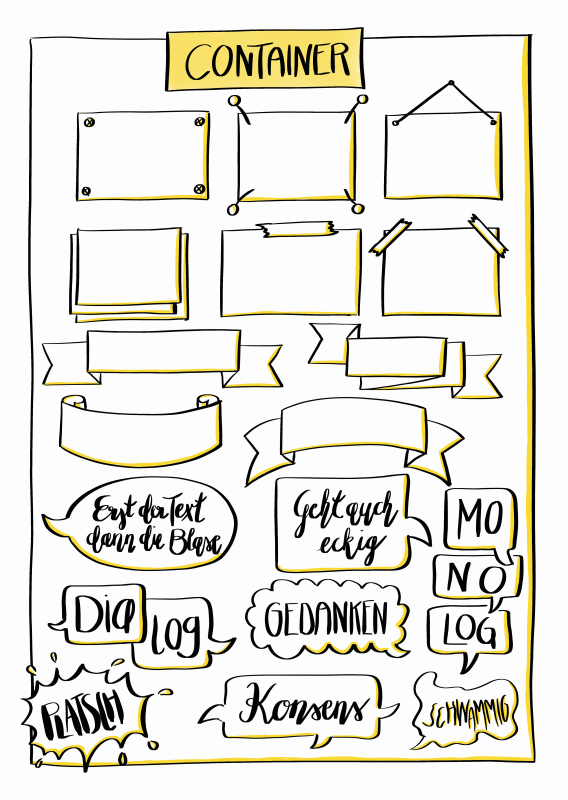 CONTAINER
Erst der Text
dann die Blase
Geht auch
eckig
MO
NO
LOG
Dia
log
GEDANKEN
PLATSCH
Konsens
SCHWAMMIG